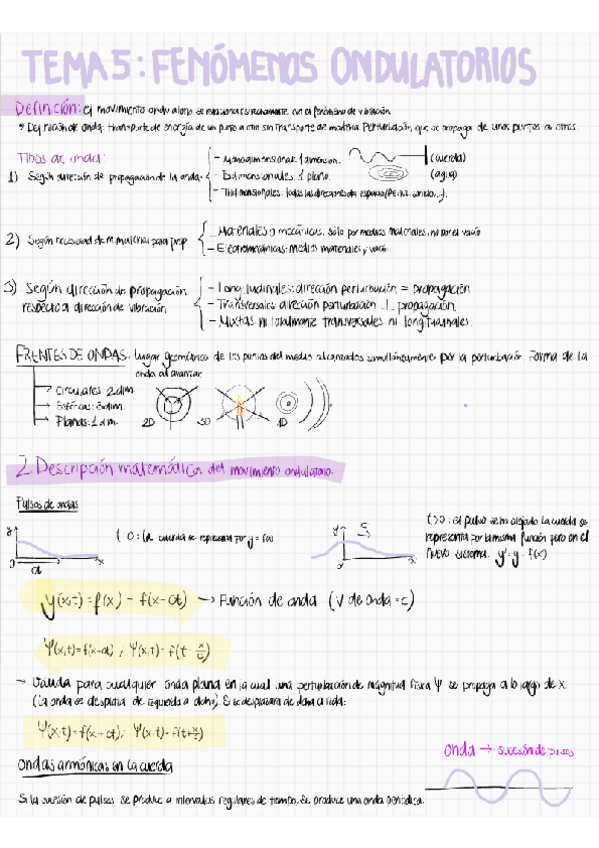 TEMA 5: FENÓMENOS ONDULATORIOS
Definición: el movimiento ondulatorio se relaciona estrechamente con el fenómeno de vibración.
Definición de onda: transporte de energía de un punto a otro sin transporte de materia. Perturbación que se propaga de unos puntos a otros.
Tipos de onda:
1) Según dirección de propagación de la onda
- Monodimensional: 1 dimensión. (cuerda)
- Bidimensionales: 1 plano. (agua)
- Tridimensionales: todas las direcciones del espacio
2) Según necesidad de material para prop
- Materiales o mecánicas: sólo por medios materiales, no por el vacío
- Electromagnéticas: medios materiales y vacío
3) Según dirección de propagación
respecto a dirección de vibración
- Longitudinales: dirección perturbación = propagación
- Transversales: dirección perturbación ⊥ propagación.
- Mixtas ni totalmente transversales ni longitudinales.
FRENTES DE ONDAS: lugar geométrico de los puntos del medio alcanzados simultáneamente por la perturbación. Forma de la
onda al avanzar
Circulares: 2 dim.
Esféricas: 3 dim.
Planas: 1 dim.
2D 3D 1D
2. Descripción matemática del movimiento ondulatorio.
Pulsos de ondas
y x
t=0: la cuerda se representa por y = f(x)
y x
t>0: el pulso se ha alejado la cuerda se
representa por la misma función pero en el
nuevo sistema. y'=y=f(x)
y(x,t) = f(x') = f(x-ct) → Función de onda (v de onda = c)
Ψ(x,t) = f(x-ct); Ψ(x,t) = f(t - x/c)
→ Válida para cualquier onda plana en la cual una perturbación de magnitud física Ψ se propaga a lo largo de x.
(la onda se desplaza de izquierda a dcha). Si se desplazara de dcha a izda:
Ψ(x,t) = f(x+ct); Ψ(x,t) = f(t+x/c)
Onda → sucesión de pulsos
Ondas armónicas en la cuerda
Si la sucesión de pulsos se produce a intervalos regulares de tiempo, se produce una onda periódica.